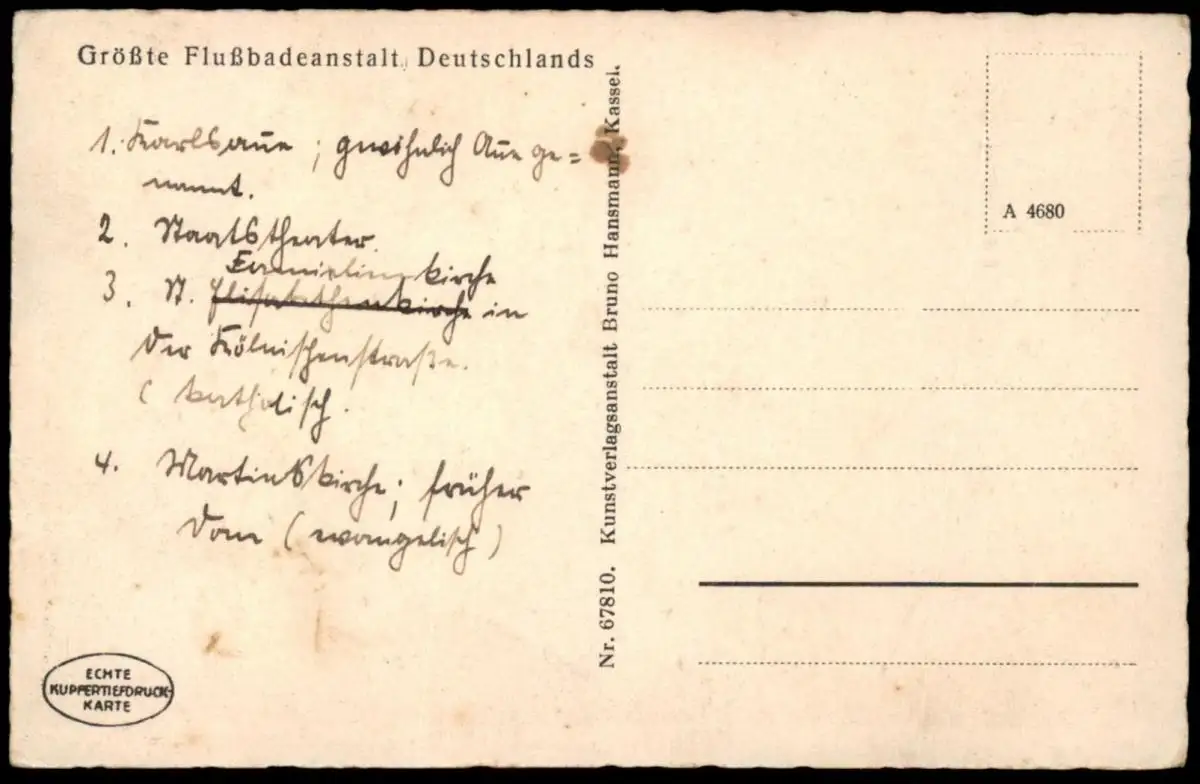 Größte Flußbadeanstalt Deutschlands
1. Karlsaue; gewöhnlich Aue ge=
nannt.
2. Staatstheater.
kirche
3. St. Elisabethenkirche in
der Kölnischenstraße.
(katholisch.
4. Martinskirche; früher
Dom (evangelisch)
ECHTE
KUPFERTIEFDRUCK-
KARTE
Nr. 67810. Kunstverlagsanstalt Bruno Hansmann, Kassel.
A 4680